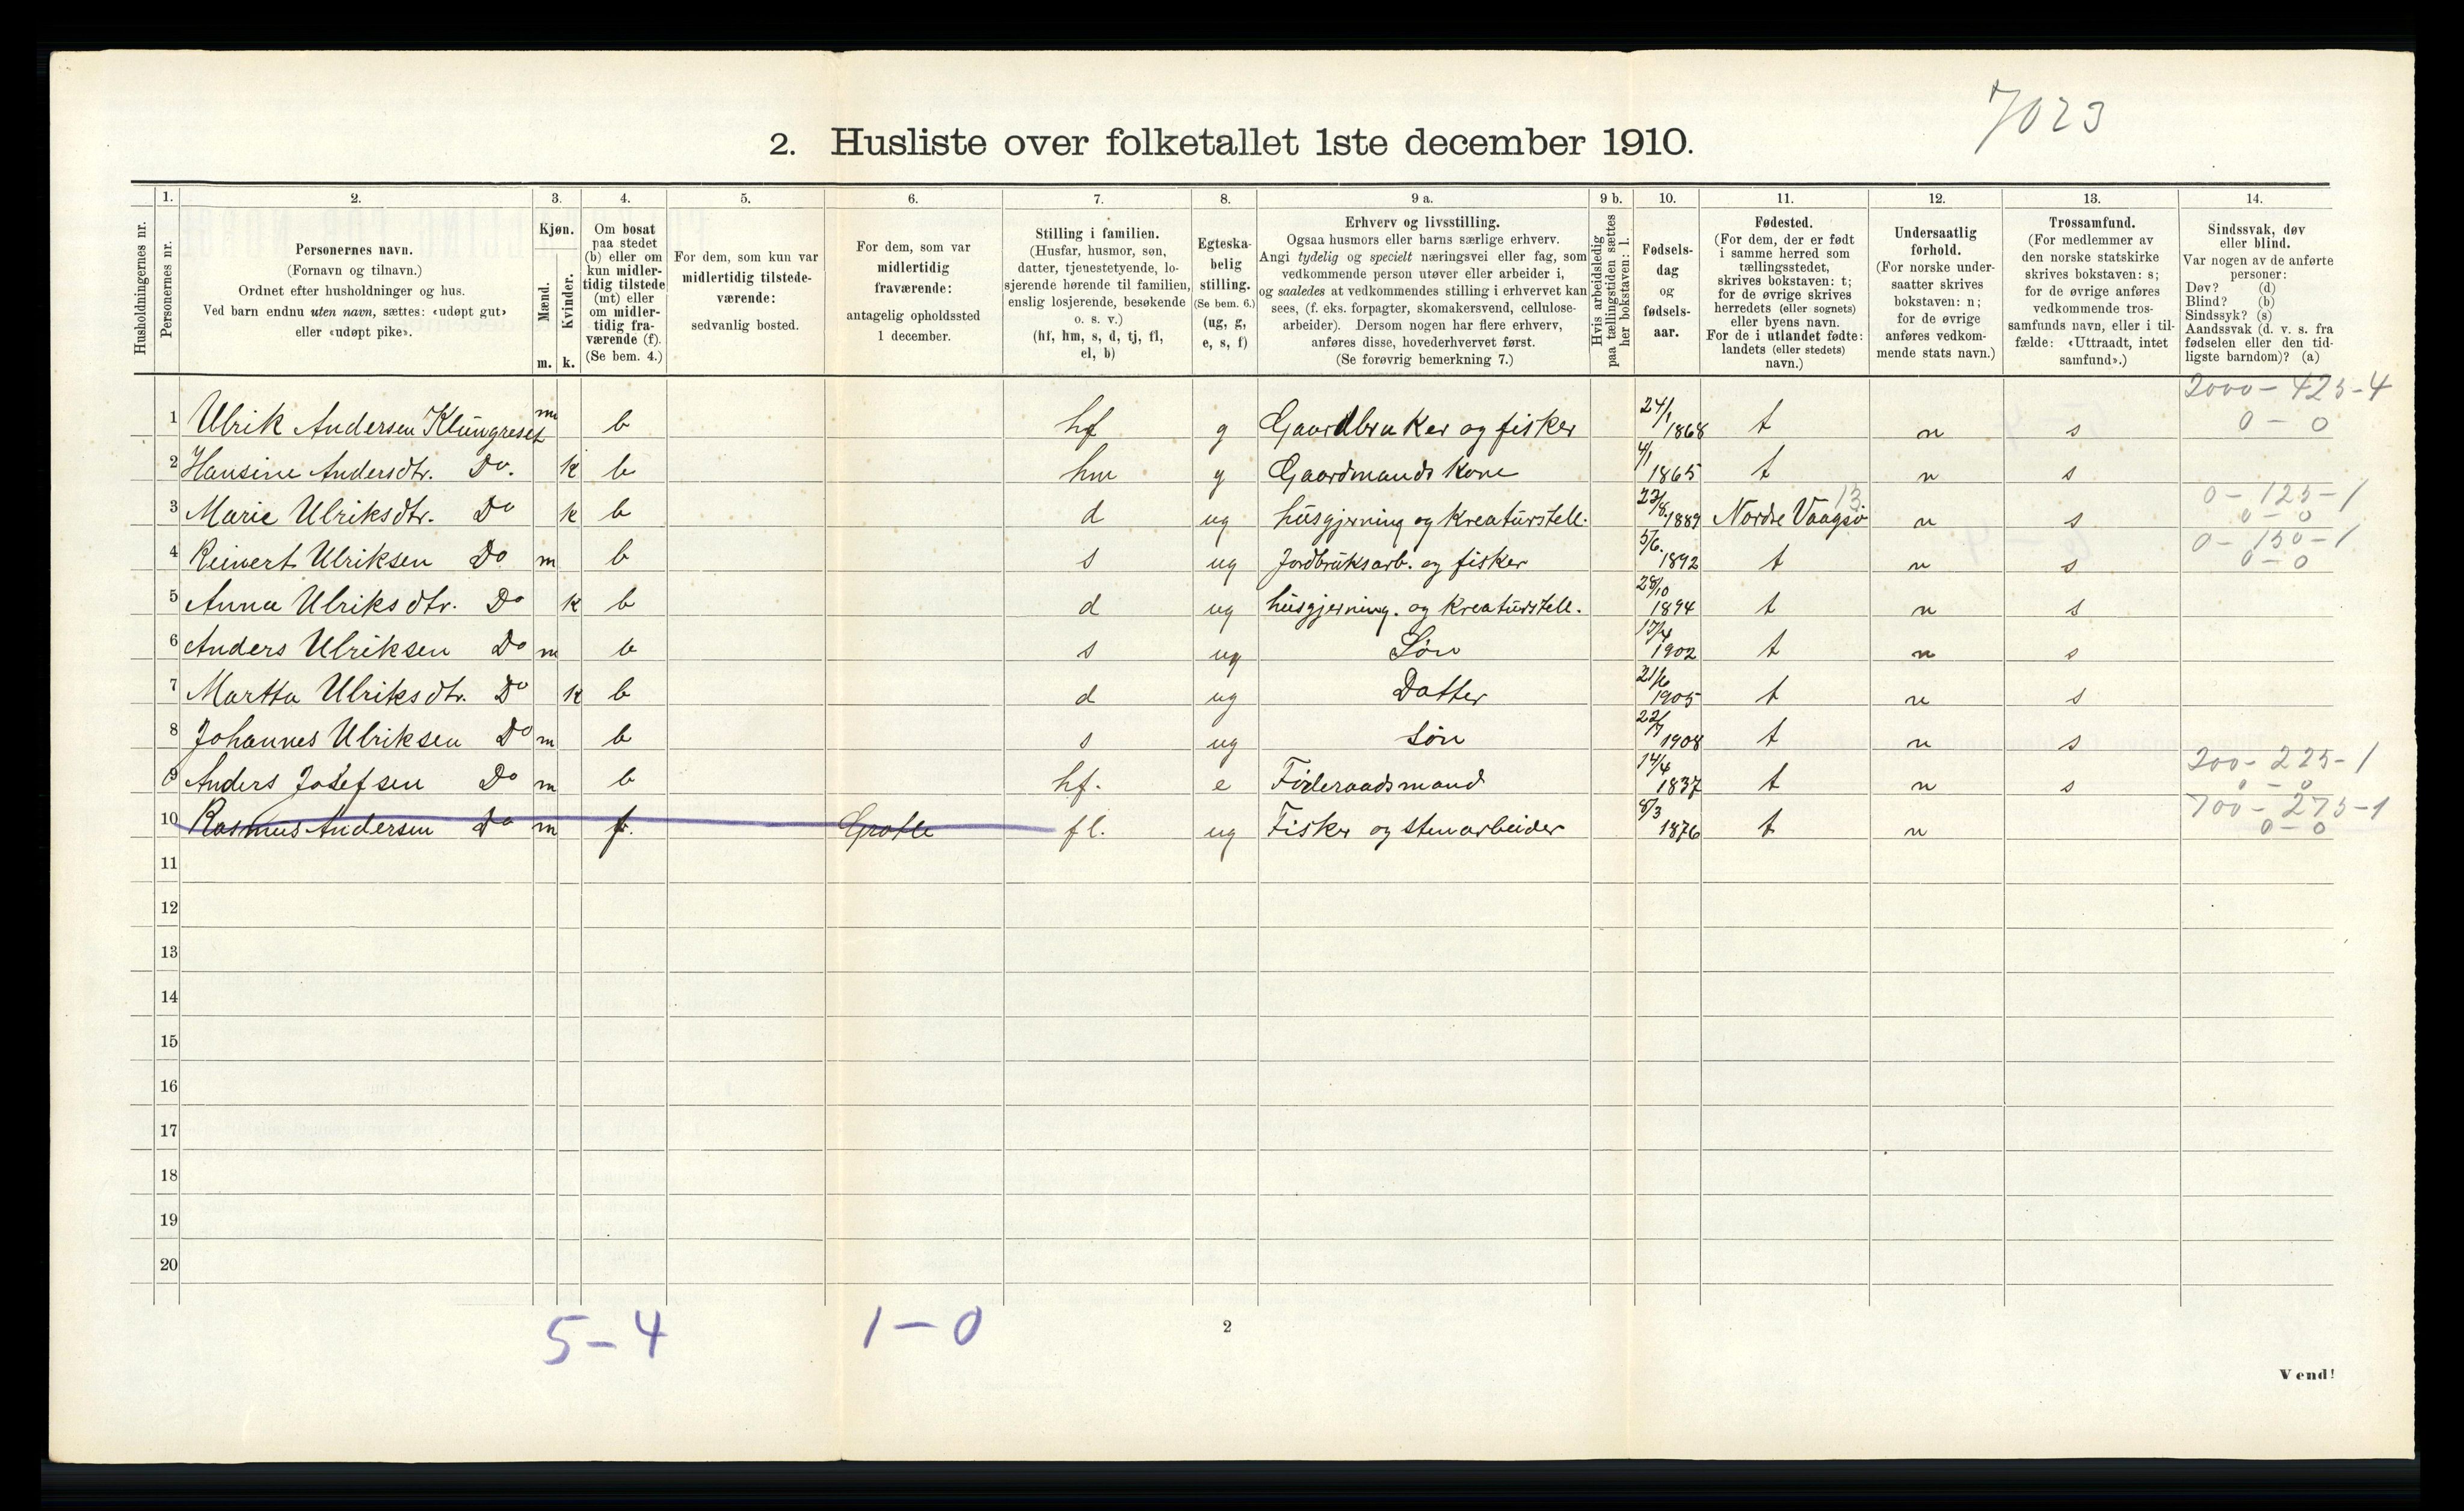 7023
2. Husliste over folketallet 1ste december 1910.
Husholdningernes nr.
1. Personernes nr.
2. Personernes navn. (Fornavn og tilnavn.) Ordnet efter husholdninger og hus. Ved barn endnu uten navn, sættes: «udøpt gut» eller «udøpt pike».
3. Kjøn. Mænd. m. Kvinder. k.
4. Om bosat paa stedet (b) eller om kun midlertidig tilstede (mt) eller om midlertidig fraværende (f). (Se bem. 4.)
5. For dem, som kun var midlertidig tilstedeværende: sedvanlig bosted.
6. For dem, som var midlertidig fraværende: antagelig opholdssted 1 december.
7. Stilling i familien. (Husfar, husmor, søn, datter, tjenestetyende, losjerende hørende til familien, enslig losjerende, besøkende o. s. v.) (hf, hm, s, d, tj, fl, el, b)
8. Egteskabelig stilling. (Se bem. 6.) (ug, g, e, s, f)
9 a. Erhverv og livsstilling. Ogsaa husmors eller barns særlige erhverv. Angi tydelig og specielt næringsvei eller fag, som vedkommende person utøver eller arbeider i, og saaledes at vedkommendes stilling i erhvervet kan sees, (f. eks. forpagter, skomakersvend, cellulosearbeider). Dersom nogen har flere erhverv, anføres disse, hovederhvervet først. (Se forøvrig bemerkning 7.)
9 b. Hvis arbeidsledig paa tællingstiden sættes her bokstaven: l.
10. Fødselsdag og fødselsaar.
11. Fødested. (For dem, der er født i samme herred som tællingsstedet, skrives bokstaven: t; for de øvrige skrives herredets (eller sognets) eller byens navn. For de i utlandet fødte: landets (eller stedets) navn.)
12. Undersaatlig forhold. (For norske undersaatter skrives bokstaven: n; for de øvrige anføres vedkommende stats navn.)
13. Trossamfund. (For medlemmer av den norske statskirke skrives bokstaven: s; for de øvrige anføres vedkommende trossamfunds navn, eller i tilfælde: «Uttraadt, intet samfund».)
14. Sindssvak, døv eller blind. Var nogen av de anførte personer: Døv? (d) Blind? (b) Sindssyk? (s) Aandssvak (d. v. s. fra fødselen eller den tidligste barndom)? (a)
2000 - 425 - 4
1 Ulrik Andersen Klungreset m b hf g Gaardbruker og fisker 24/1 1868 t n s 0 - 0
2 Hansine Andersdtr. Do. k b hm g Gaardmands Kone 4/1 1865 t n s
13 0 - 125 - 1
3 Marie Ulriksdtr. Do k b d ug husgjerning og Kreaturstell. 23/8. 1889 Nordre Vaagsø n s 0 - 0
0 - 150 - 1
4 Reinert Ulriksen Do m b s ug Jordbruksarb. og fisker 5/6. 1892 t n s 0 - 0
5 Anna Ulriksdtr. Do k b d ug husgjerning. og Kreaturstell. 28/10 1894 t n s
6 Anders Ulriksen Do m b s ug Søn 17/4 1902 t n s
7 Martha Ulriksdtr. Do k b d ug Datter 21/6 1905 t n s
8 Johannes Ulriksen Do m b s ug Søn 22/7 1908 t n s
200 - 225 - 1
9 Anders Josefsen Do m b hf. e Føderaadsmand 14/4 1837 t n s 0 - 0
700 - 275 - 1
10 Rasmus Andersen Do m f. Grotle fl. ug Fisker og stenarbeider 8/3 1876 t n 0 - 0
11
12
13
14
15
16
17
18
19
20
5 - 4 1 - 0
2
Vend!